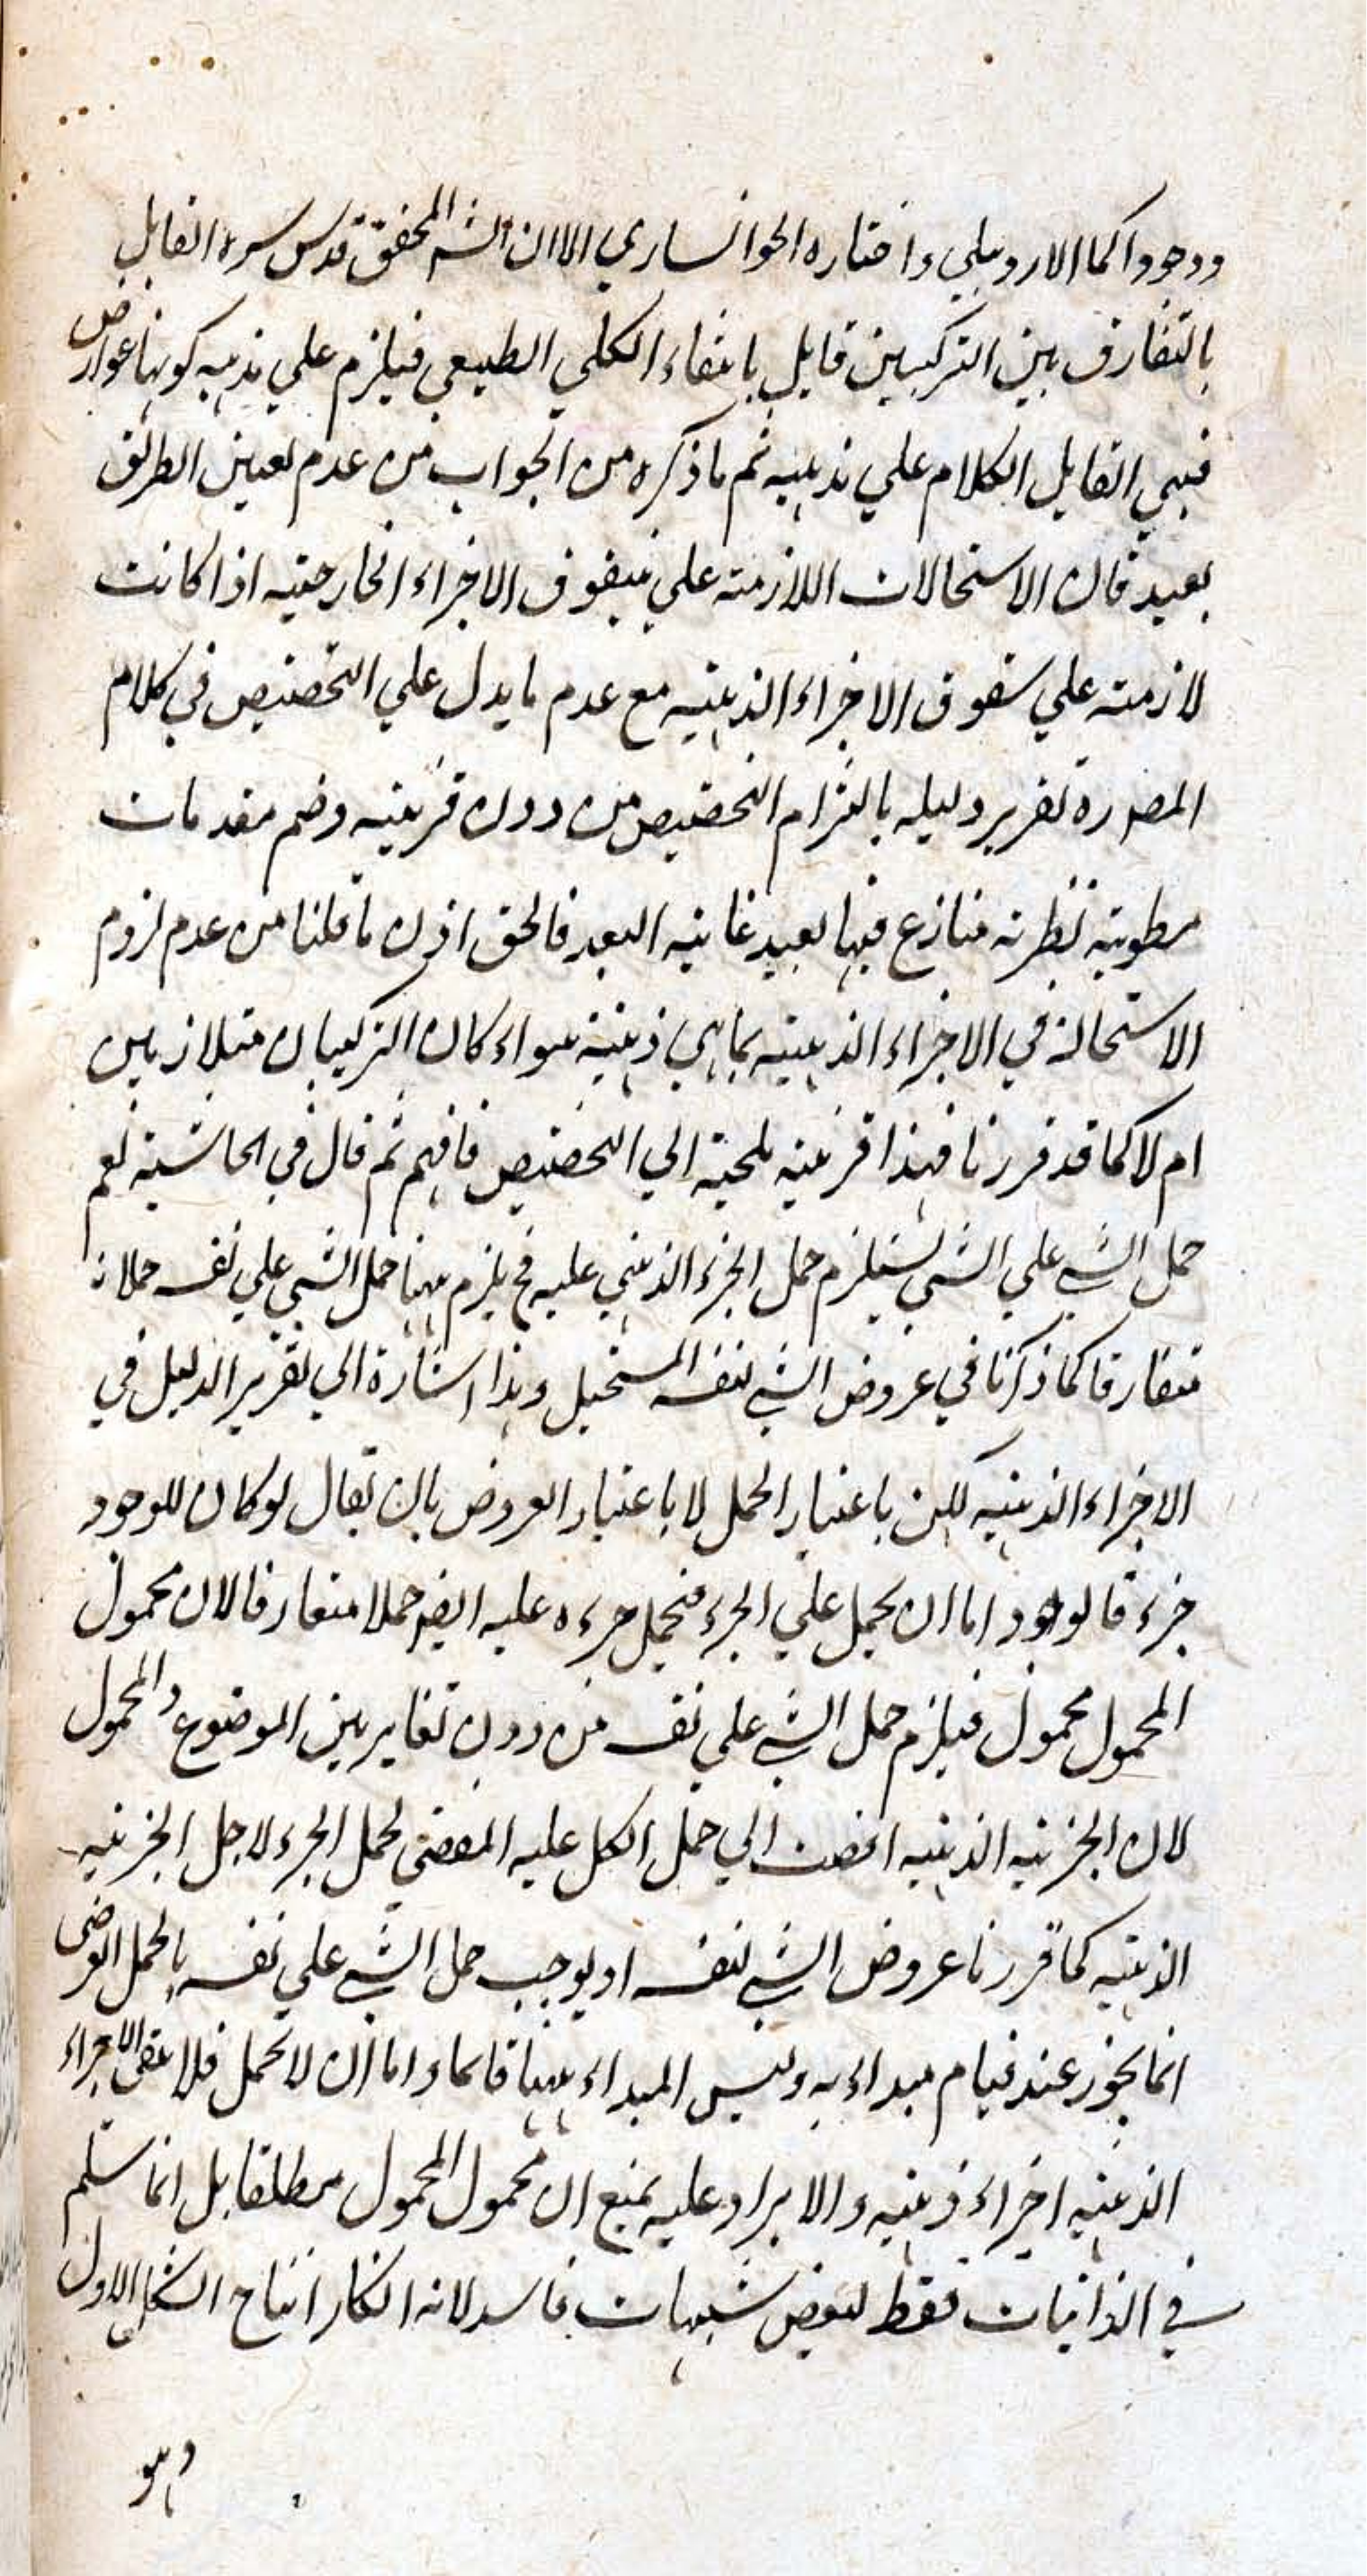 ووجودا كما الاردبيلي واختاره الخوانساري الا ان الش المحقق قدس سره القايل
بالتفارق بين التركيبين قايل بانتفاء الكلي الطبيعي فيلزم علي مذهبه كونها عوارض
فبهي القايل الكلام علي مذهبه ثم ما ذكره من الجواب من عدم تعين الطرائق
بعيد فان الاستحالات اللازمته علي شقوق الاجزاء الخارجيه اذا كانت
لازمته علي شقوق الاجزاء الذهنيه مع عدم ما يدل علي التخصيص في كلام
المص ره تقرير دليله بالتزام التخصيص من دون قرينيه وضم مقدمات
مطويته نظريه متنازع فيها بعيد غايته البعد فالحق اذن ما قلنا من عدم لزوم
الاستحالة في الاجزاء الذهنيه بما هي ذهنية سواء كان التركيبان متلازمين
ام لا كما قد قررنا فهذا قرينيه ملجئه الي التخصيص فافهم ثم قال في الحاشيته نعم
حمل الشي علي الشي يستلزم حمل الجزء الذهني عليه فح يلزم ههنا حمل الشي علي نفسه حملا
متعارفا كما ذكرنا في عروض الشي لنفسه المستحيل وهذا اشارة الي تقرير الدليل في
الاجزاء الذهنيه لكن باعتبار الحمل لا باعتبار العروض بان يقال لو كان للوجود
جزء فالوجود اما ان يحمل علي الجزء فيحمل جزءه عليه ايض حملا متعارفا لان محمول
المحمول محمول فيلزم حمل الشي علي نفسه من دون تغاير بين الموضوع والمحمول
لان الجزئيه الذهنيه افضت الي حمل الكل عليه المفضي لحمل الجزء لاجل الجزئيه
الذهنيه كما قررنا عروض الشي لنفسه او يوجب حمل الشي علي نفسه بالحمل العرضي
انما يجوز عند قيام مبداء به وليس المبداء ههنا قائما واما ان لا يحمل فلا تبقي الاجزاء
الذهنيه اجزاء ذهنيه والايراد عليه بمنع ان محمول المحمول مطلقا بل انما يسلم
في الذاتيات فقط لبعض شبهات فاسد لانه انكار انتاج الشكل الاول
وهو